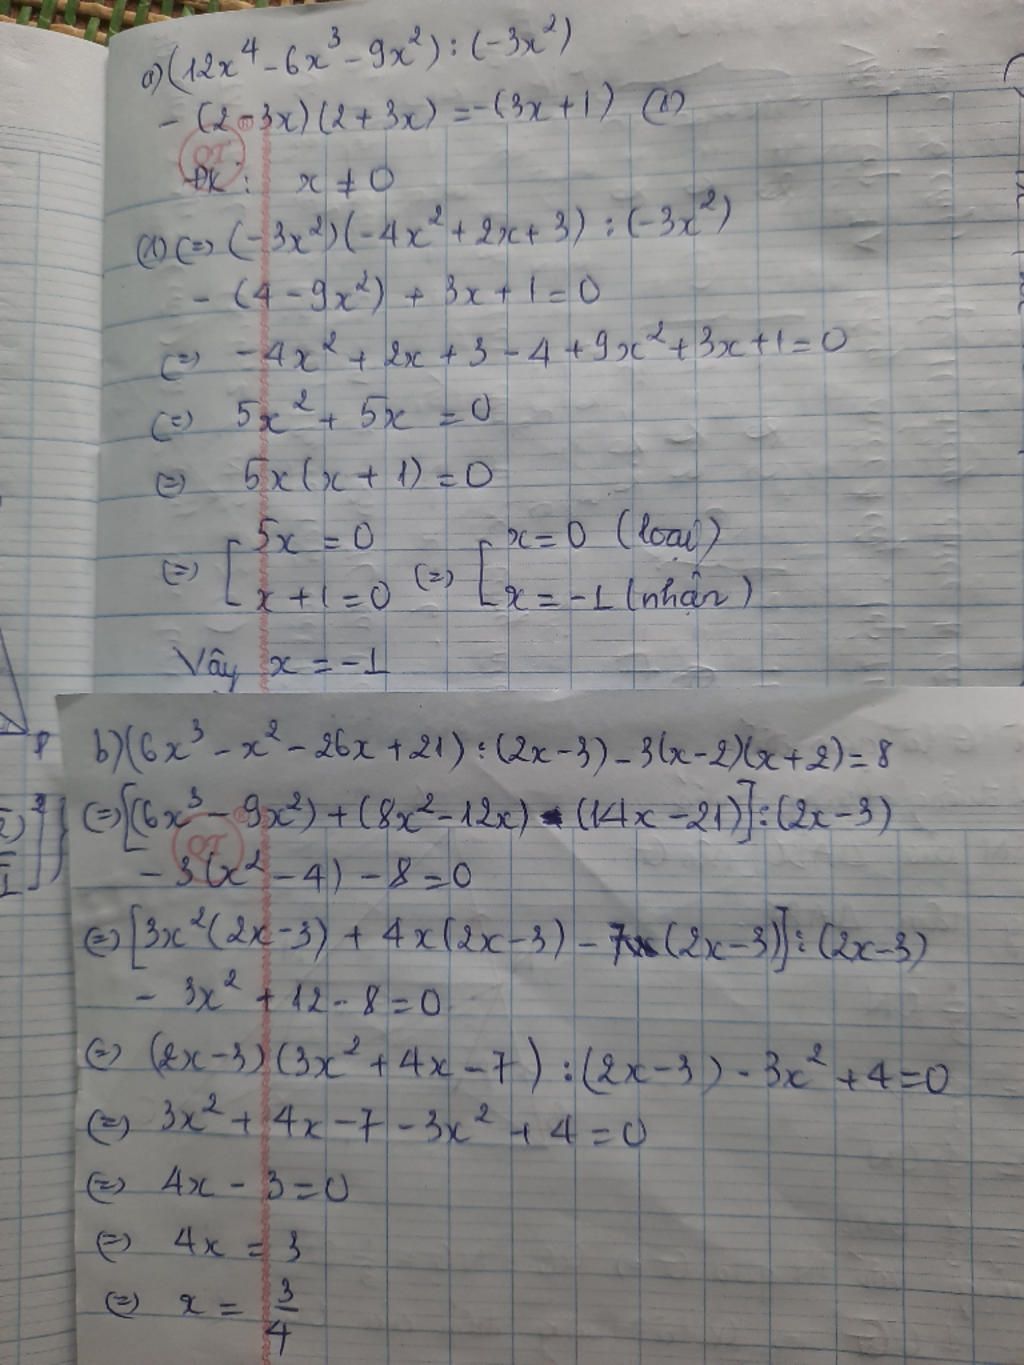 a) (12x⁴ - 6x³ - 9x²) : (-3x²)
- (2 - 3x)(2 + 3x) = -(3x + 1) (1)
ĐK : x ≠ 0
(1) (=) (-3x²)(-4x² + 2x + 3) : (-3x²)
- (4 - 9x²) + 3x + 1 = 0
(=) -4x² + 2x + 3 - 4 + 9x² + 3x + 1 = 0
(=) 5x² + 5x = 0
(=) 5x(x + 1) = 0
(=) [ 5x = 0 (=) [ x = 0 (loại)
x + 1 = 0 x = -1 (nhận)
Vậy x = -1
b) (6x³ - x² - 26x + 21) : (2x - 3) - 3(x - 2)(x + 2) = 8
(=) [(6x³ - 9x²) + (8x² - 12x) - (14x - 21)] : (2x - 3)
- 3(x² - 4) - 8 = 0
(=) [3x²(2x - 3) + 4x(2x - 3) - 7(2x - 3)] : (2x - 3)
- 3x² + 12 - 8 = 0
(=) (2x - 3)(3x² + 4x - 7) : (2x - 3) - 3x² + 4 = 0
(=) 3x² + 4x - 7 - 3x² + 4 = 0
(=) 4x - 3 = 0
(=) 4x = 3
(=) x = 3/4